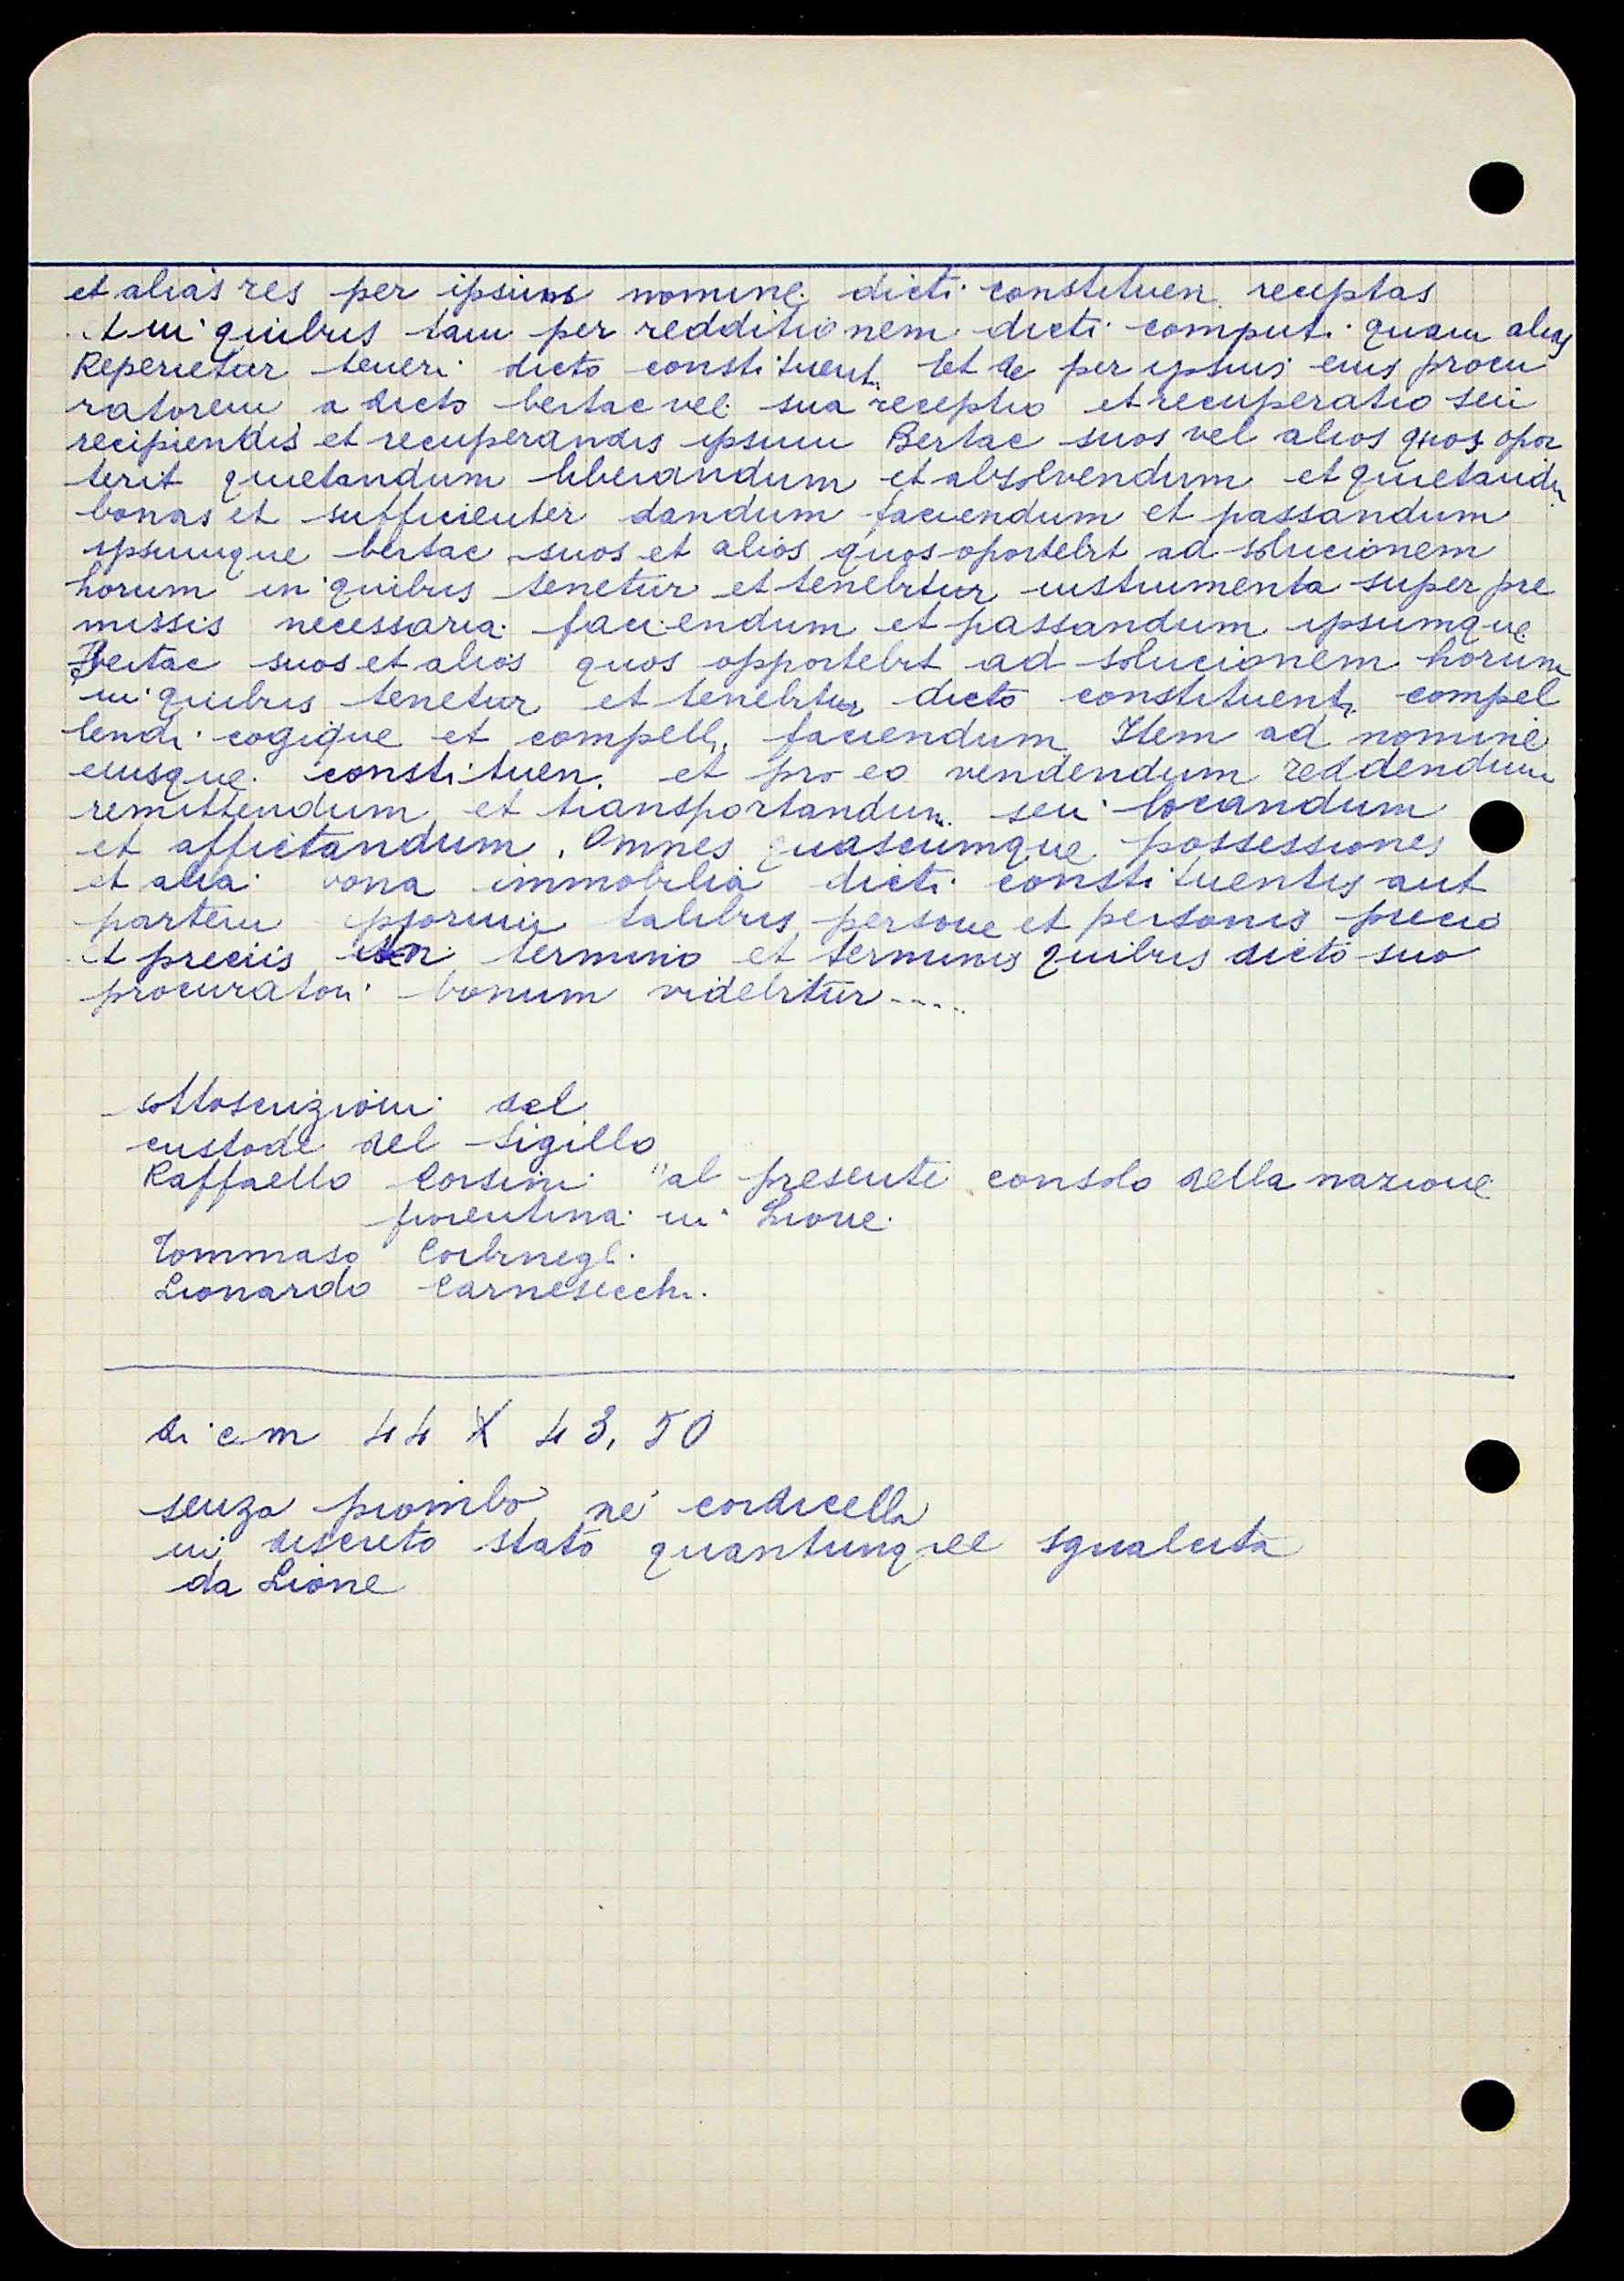 et alias res per ipsius nomine dicti constituen receptas
et in quibus tam per redditionem dicti computi quam alias
Reperietur teneri dicto constituenti et de per ipsius eius procu
ratorem a dicto bertac vel sua receptio et recuperatio seu
recipiendis et recuperandis ipsum Bertac suos vel alios quos opor
terit quietandum liberandum et absolvendum et quietandu
bonas et sufficienter dandum faciendum et passandum
ipsumque bertac suos et alios quos oportebit ad solucionem
horum in quibus tenetur et tenebitur instrumenta super pre
missis necessaria faciendum et passandum ipsumque
Bertac suos et alios quos opportebit ad solucionem horum
in quibus tenetur et tenebitur dicto constituenti compel
lendi cogique et compelli faciendum Item ad nomine
eiusque constituen. et pro eo vendendum reddendum
remittendum et transportandum seu locandum
et affictandum. Omnes quascumque possessiones
et alia bona immobilia dicti constituentis aut
partem ipsorum talibus persone et personis precio
et preciis in termino et terminis quibus dicto suo
procuratori bonum videbitur.....
sottoscrizioni del
custode del Sigillo
Raffaello Corsini "al presente consolo della nazione
fiorentina in Lione
Tommaso Corbinegli
Lionardo Carnesecchi.
di cm 44 X 43,50
senza piombo né cordicella
in discreto stato quantunque sgualcita
da Lione